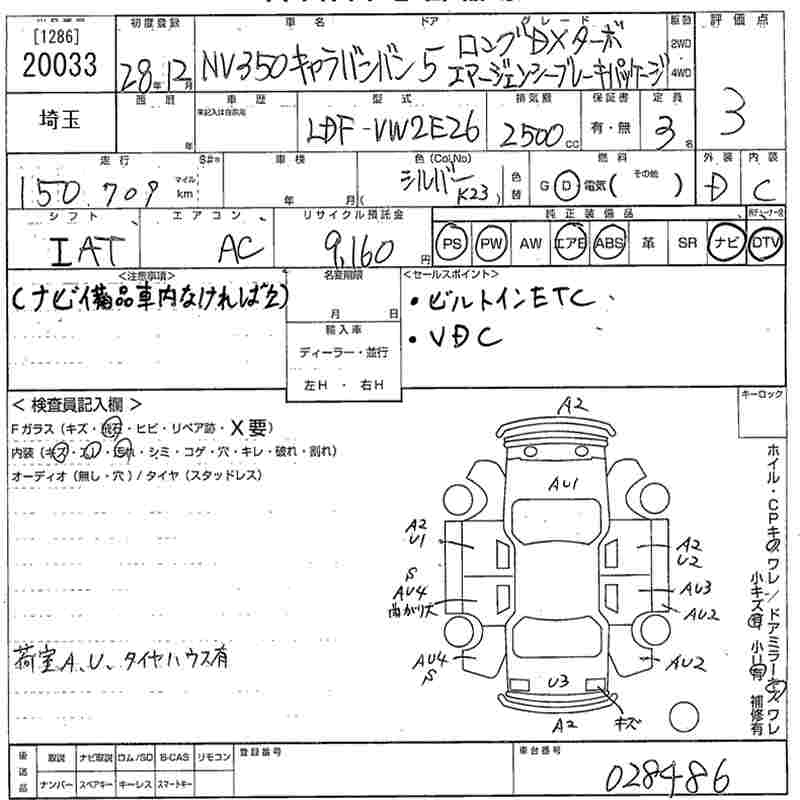 [1286]
20033
初度登録 車名 ドア グレード 駆動 評価点
28年12月 NV350キャラバンバン 5 ロングDXターボ
エマージェンシーブレーキパッケージ
2WD
4WD
3
埼玉
西暦 車歴 型式 排気量 保証書 定員
年 未記入は自家用 LDF-VW2E26 2500cc 有・無 3名
走行 S#※ 車検 色(Col,No) 燃料 外装 内装
150,709 マイル km 年 月 シルバー (K23) 色替 G D 電気( その他 ) D C
シフト エアコン リサイクル預託金 純正装備品
IAT AC 9,160円 PS PW AW エアB ABS 革 SR ナビ DTV
<注意事項> 名変期限 <セールスポイント>
(ナビ備品車内なければ欠) 月 日 ・ビルトインETC
輸入車 ・VDC
ディーラー・並行
左H ・ 右H
< 検査員記入欄 > キーロック
Fガラス (キズ・飛石・ヒビ・リペア跡・X要)
内装 (キズ・コレ・汚れ・シミ・コゲ・穴・キレ・破れ・割れ)
オーディオ (無し・穴) / タイヤ (スタッドレス)
A2
AU1
A2
U1
A2
U2
S
AU4
AU3
AU2
AU4
S
AU2
U3
キズ
A2
ホイル・CPキズワレ/ドアミラーキズワレ
小キズ有 小U有 補修有
荷室A、U、タイヤハウス有
後送品 取説 ナビ取説 ロム/SD B-CAS リモコン 登録番号 車台番号
ナンバー スペアキー キーレス スマートキー 028486